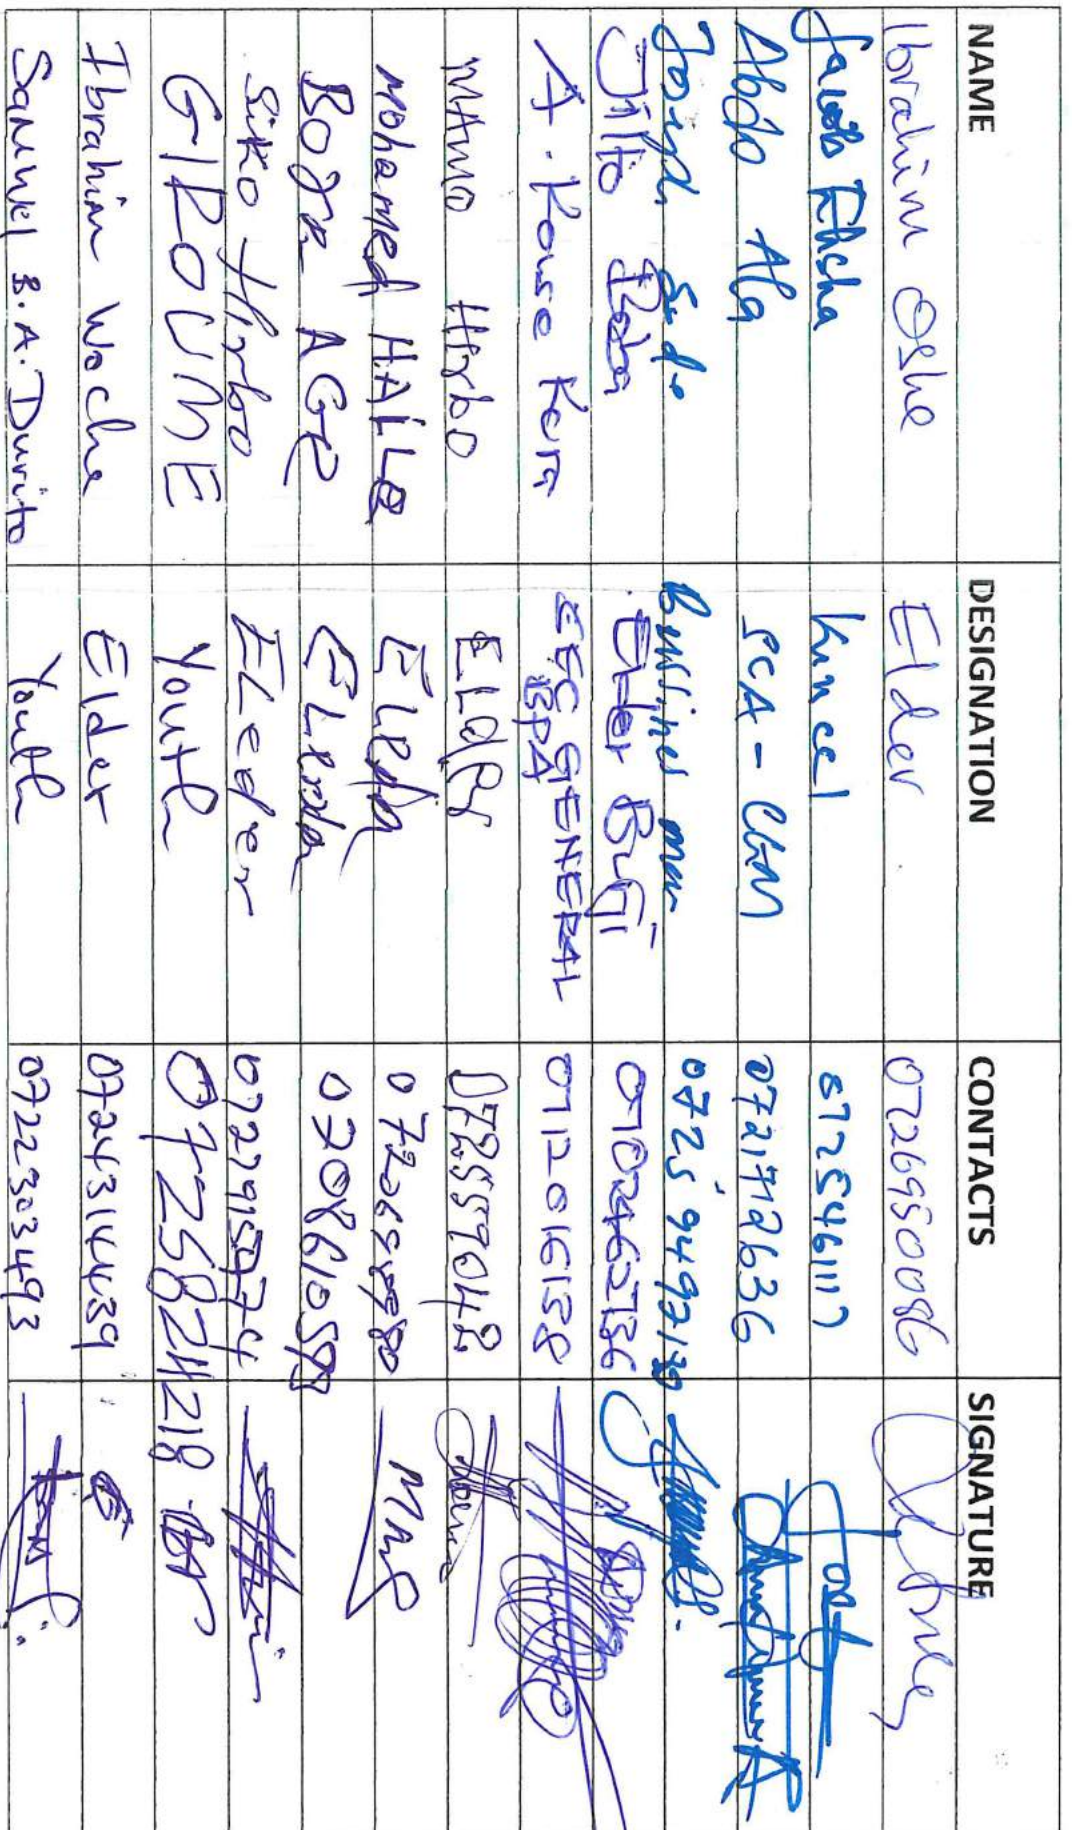 NAME DESIGNATION CONTACTS SIGNATURE
Ibrahim Oshe Elder 0726950086
Jacob Elisha Kuncel 0725461117
Abdo Ala SCA - CGM 0721712636
Joseph Sode Bussines man
Jillo Boba Elder BuGi 0702462736
A. Konso Kura EEC GENERAL BPA 0712016158
MAMO Hirbo ELdeR 0725597042
Mohamed HAILE 0720659980
Bora AGE 0708610593
Siko Hirbo ELeder 0727915974
GIROUME Youth 0725824218
Ibrahim Woche Elder 0724314439
Samuel B. A. Durito Youth 0722303493